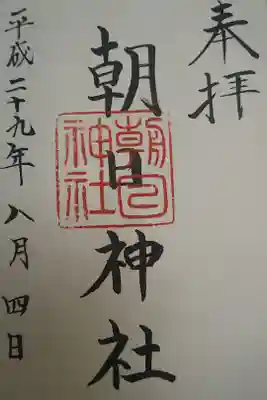 奉拝
朝日神社
朝日神社
平成二十九年八月四日